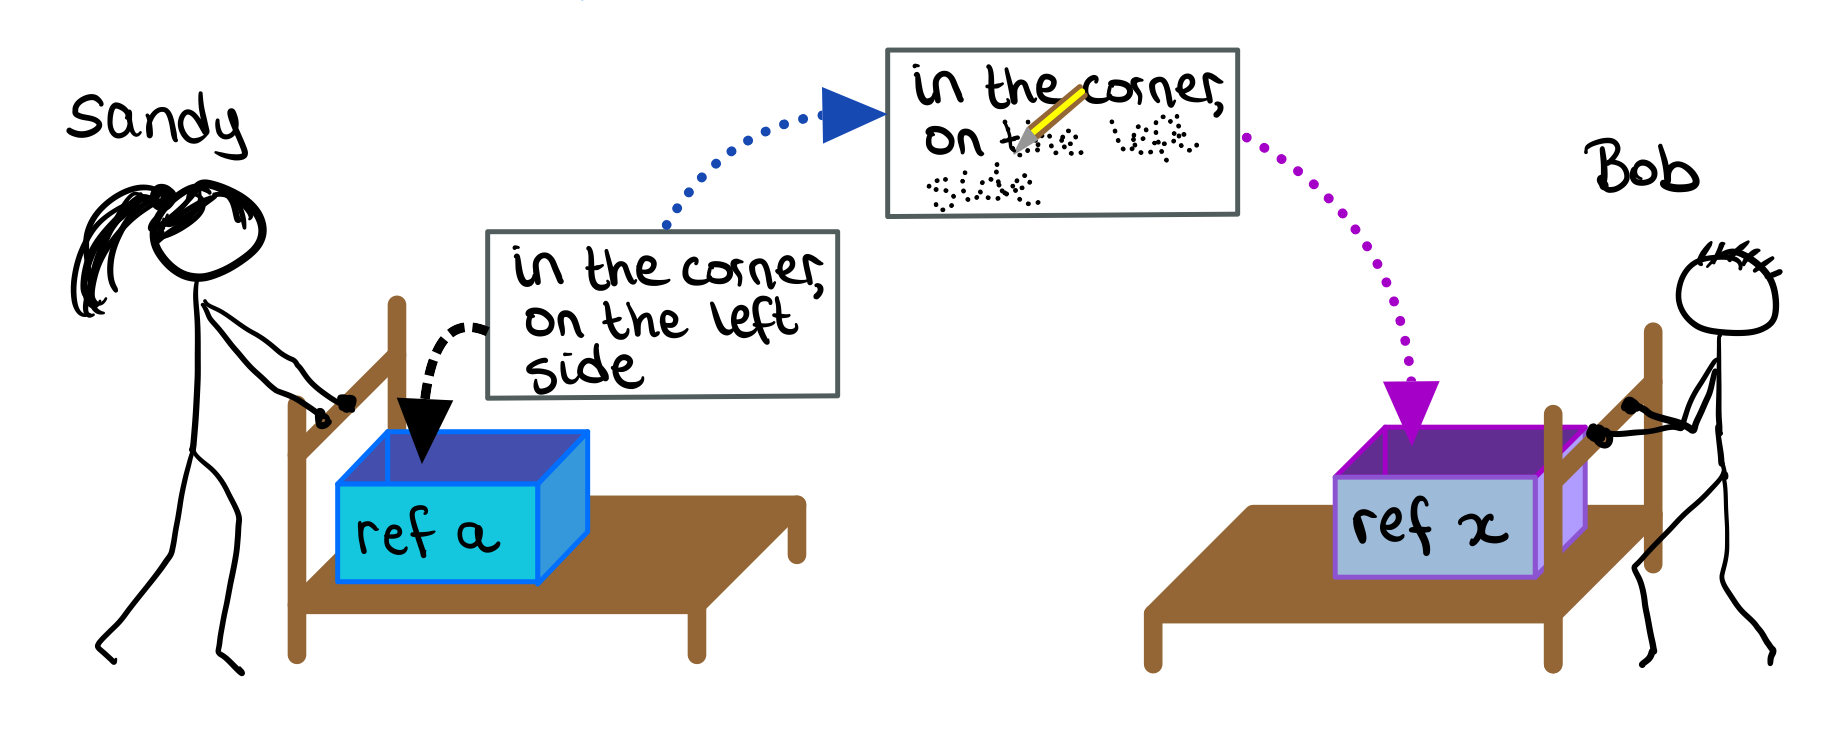 Sandy
in the corner,
on the left
side
ref a
in the corner,
on the left
side
Bob
ref x